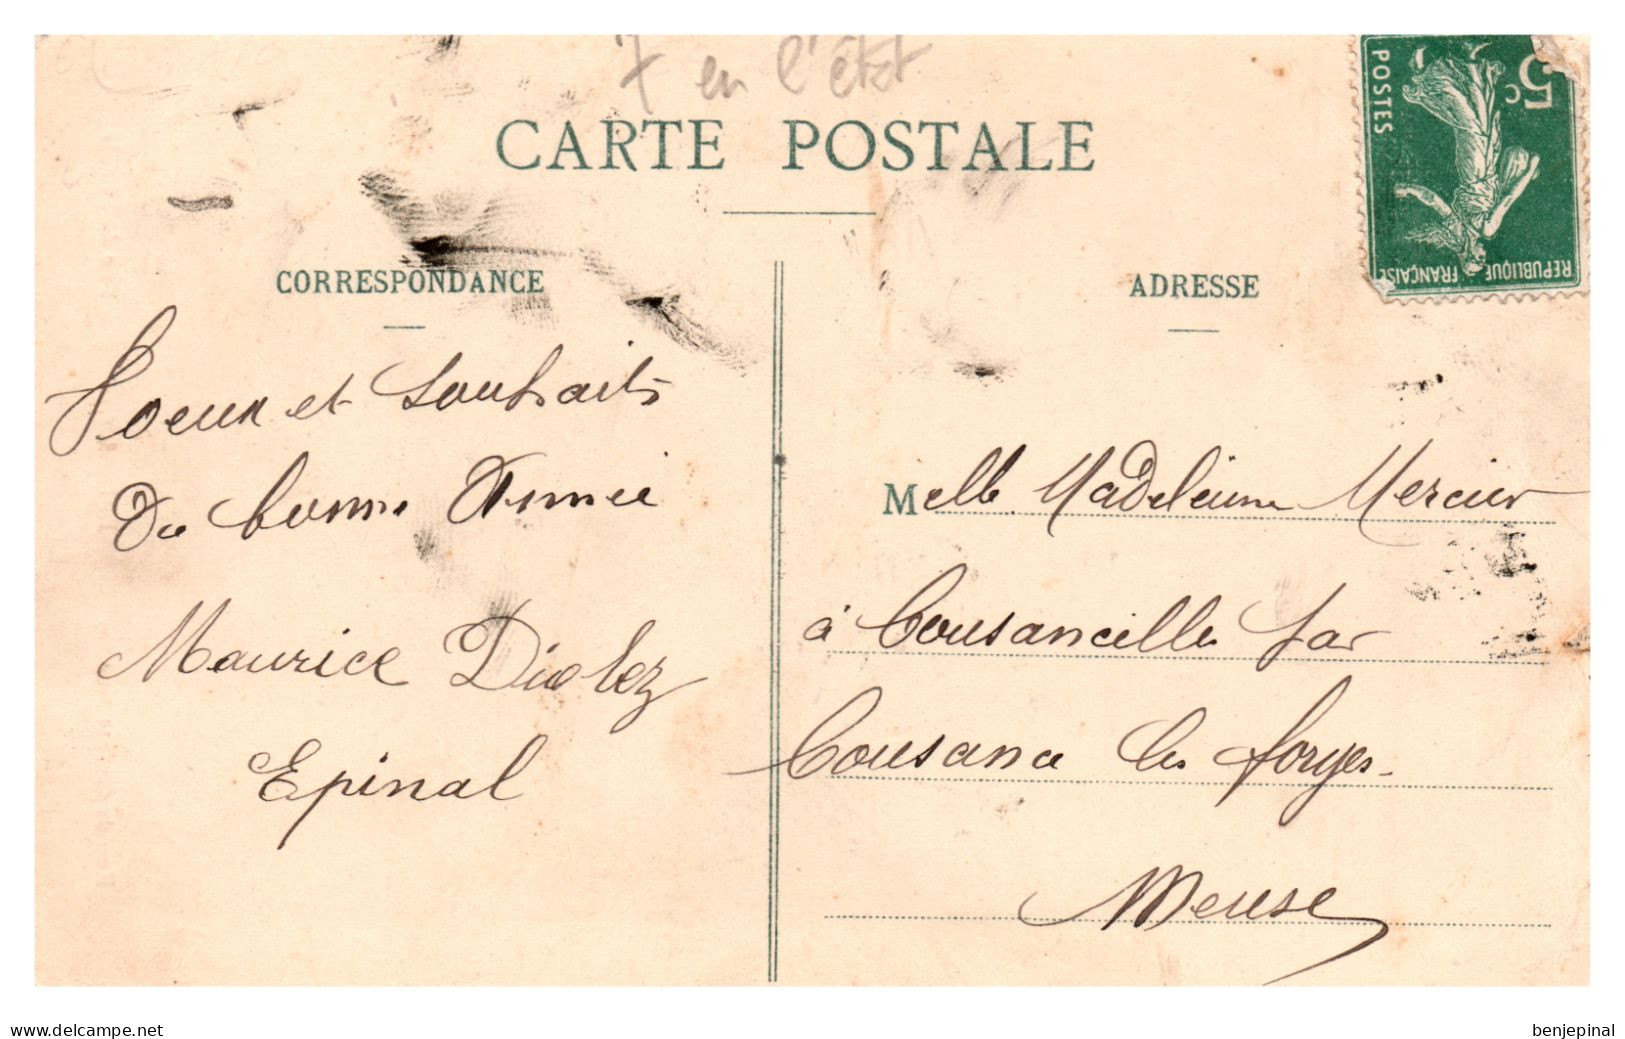 7 en l'état
CARTE POSTALE
POSTES
5c
REPUBLIQUE FRANÇAISE
CORRESPONDANCE
Voeux et souhaits
de bonne Année
Maurice Diolez
Epinal
ADRESSE
Melle Madeleine Mercier
à Cousancelles par
Cousance les forges
Meuse
www.delcampe.net
benjepinal